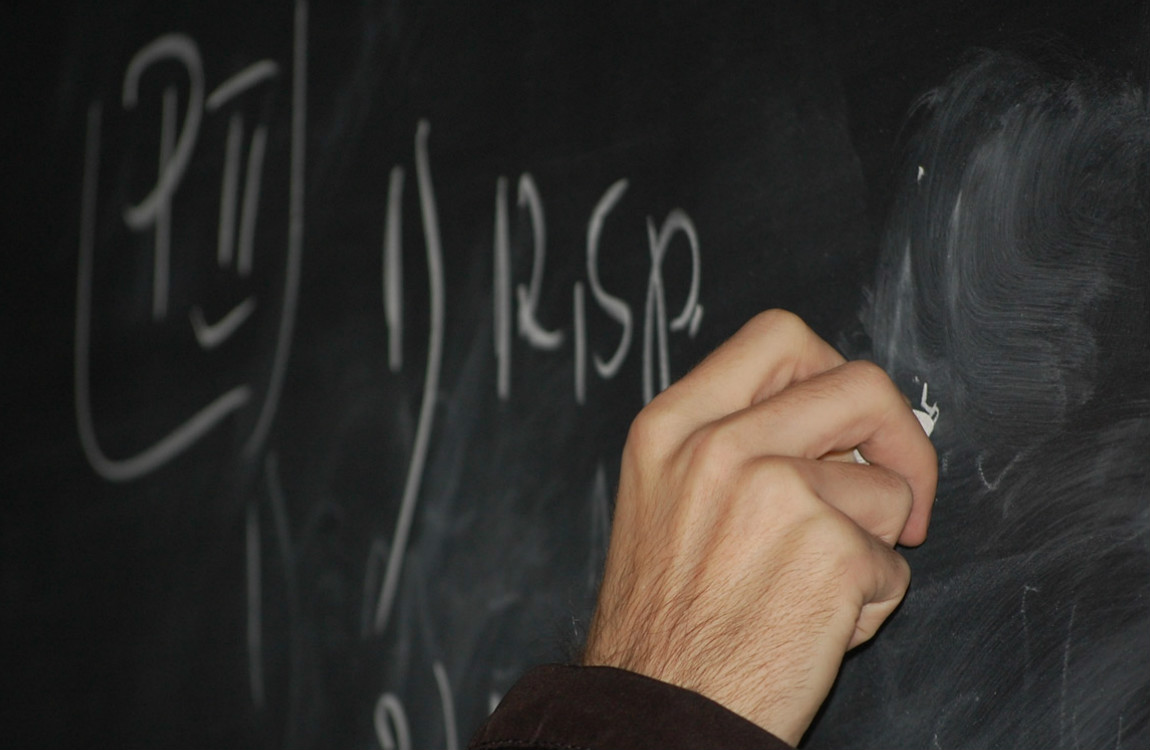 PII
1) Risp.
2)